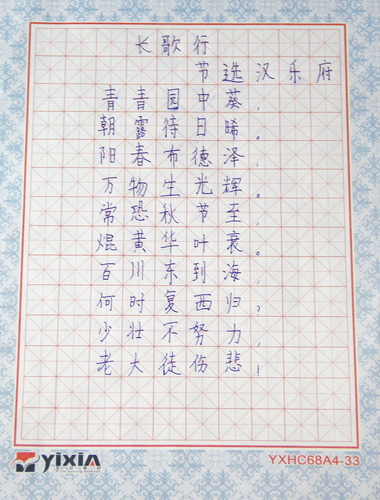 长歌行
节选汉乐府
青青园中葵，
朝露待日晞。
阳春布德泽，
万物生光辉。
常恐秋节至，
焜黄华叶衰。
百川东到海，
何时复西归？
少壮不努力，
老大徒伤悲！
yixin
YXHC68A4-33